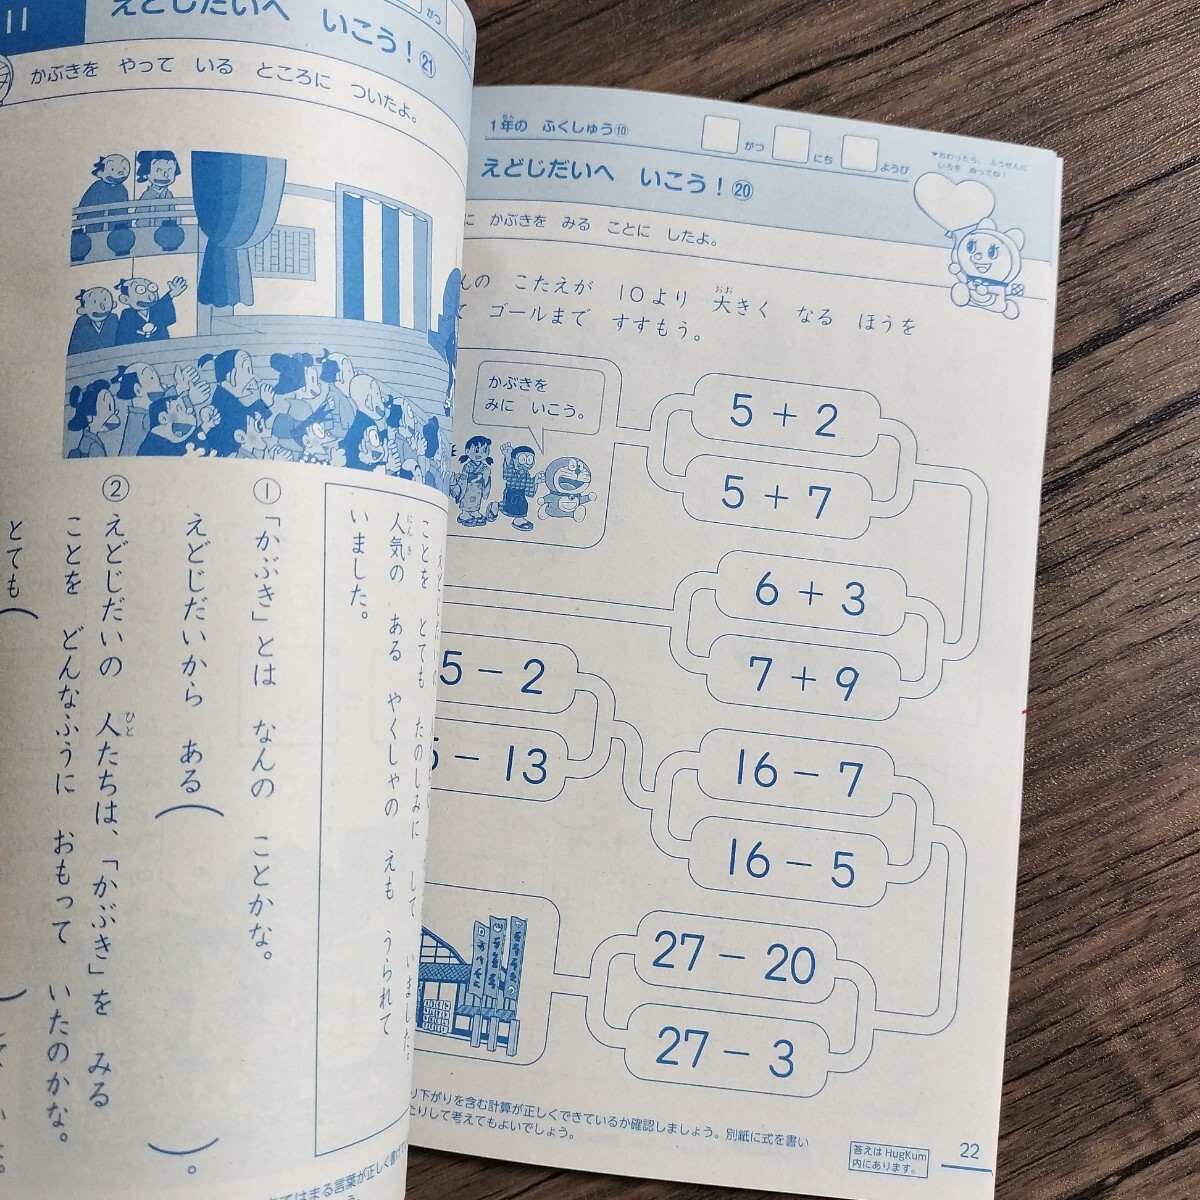 11
えどじだいへ いこう！㉑
がつ
かぶきを やって いる ところに ついたよ。
いました。
人気の ある やくしゃの えも うられて
にんき
ことを とても たのしみに して いました。
① 「かぶき」とは なんの ことかな。
えどじだいから ある（
② えどじだいの 人たちは、「かぶき」を みる
ひと
ことを どんなふうに おもって いたのかな。
とても（
）。
1年の ふくしゅう⑩
ねん
がつ
にち
ようび
▼おわったら、ふうせんに
いろを ぬってね！
えどじだいへ いこう！⑳
に かぶきを みる ことに したよ。
んの こたえが 10より 大きく なる ほうを
おお
て ゴールまで すすもう。
かぶきを
みに いこう。
5 + 2
5 + 7
6 + 3
7 + 9
5 − 2
− 13
16 − 7
16 − 5
27 − 20
27 − 3
り下がりを含む計算が正しくできているか確認しましょう。別紙に式を書い
たりして考えてもよいでしょう。
答えは HugKum
内にあります。
22